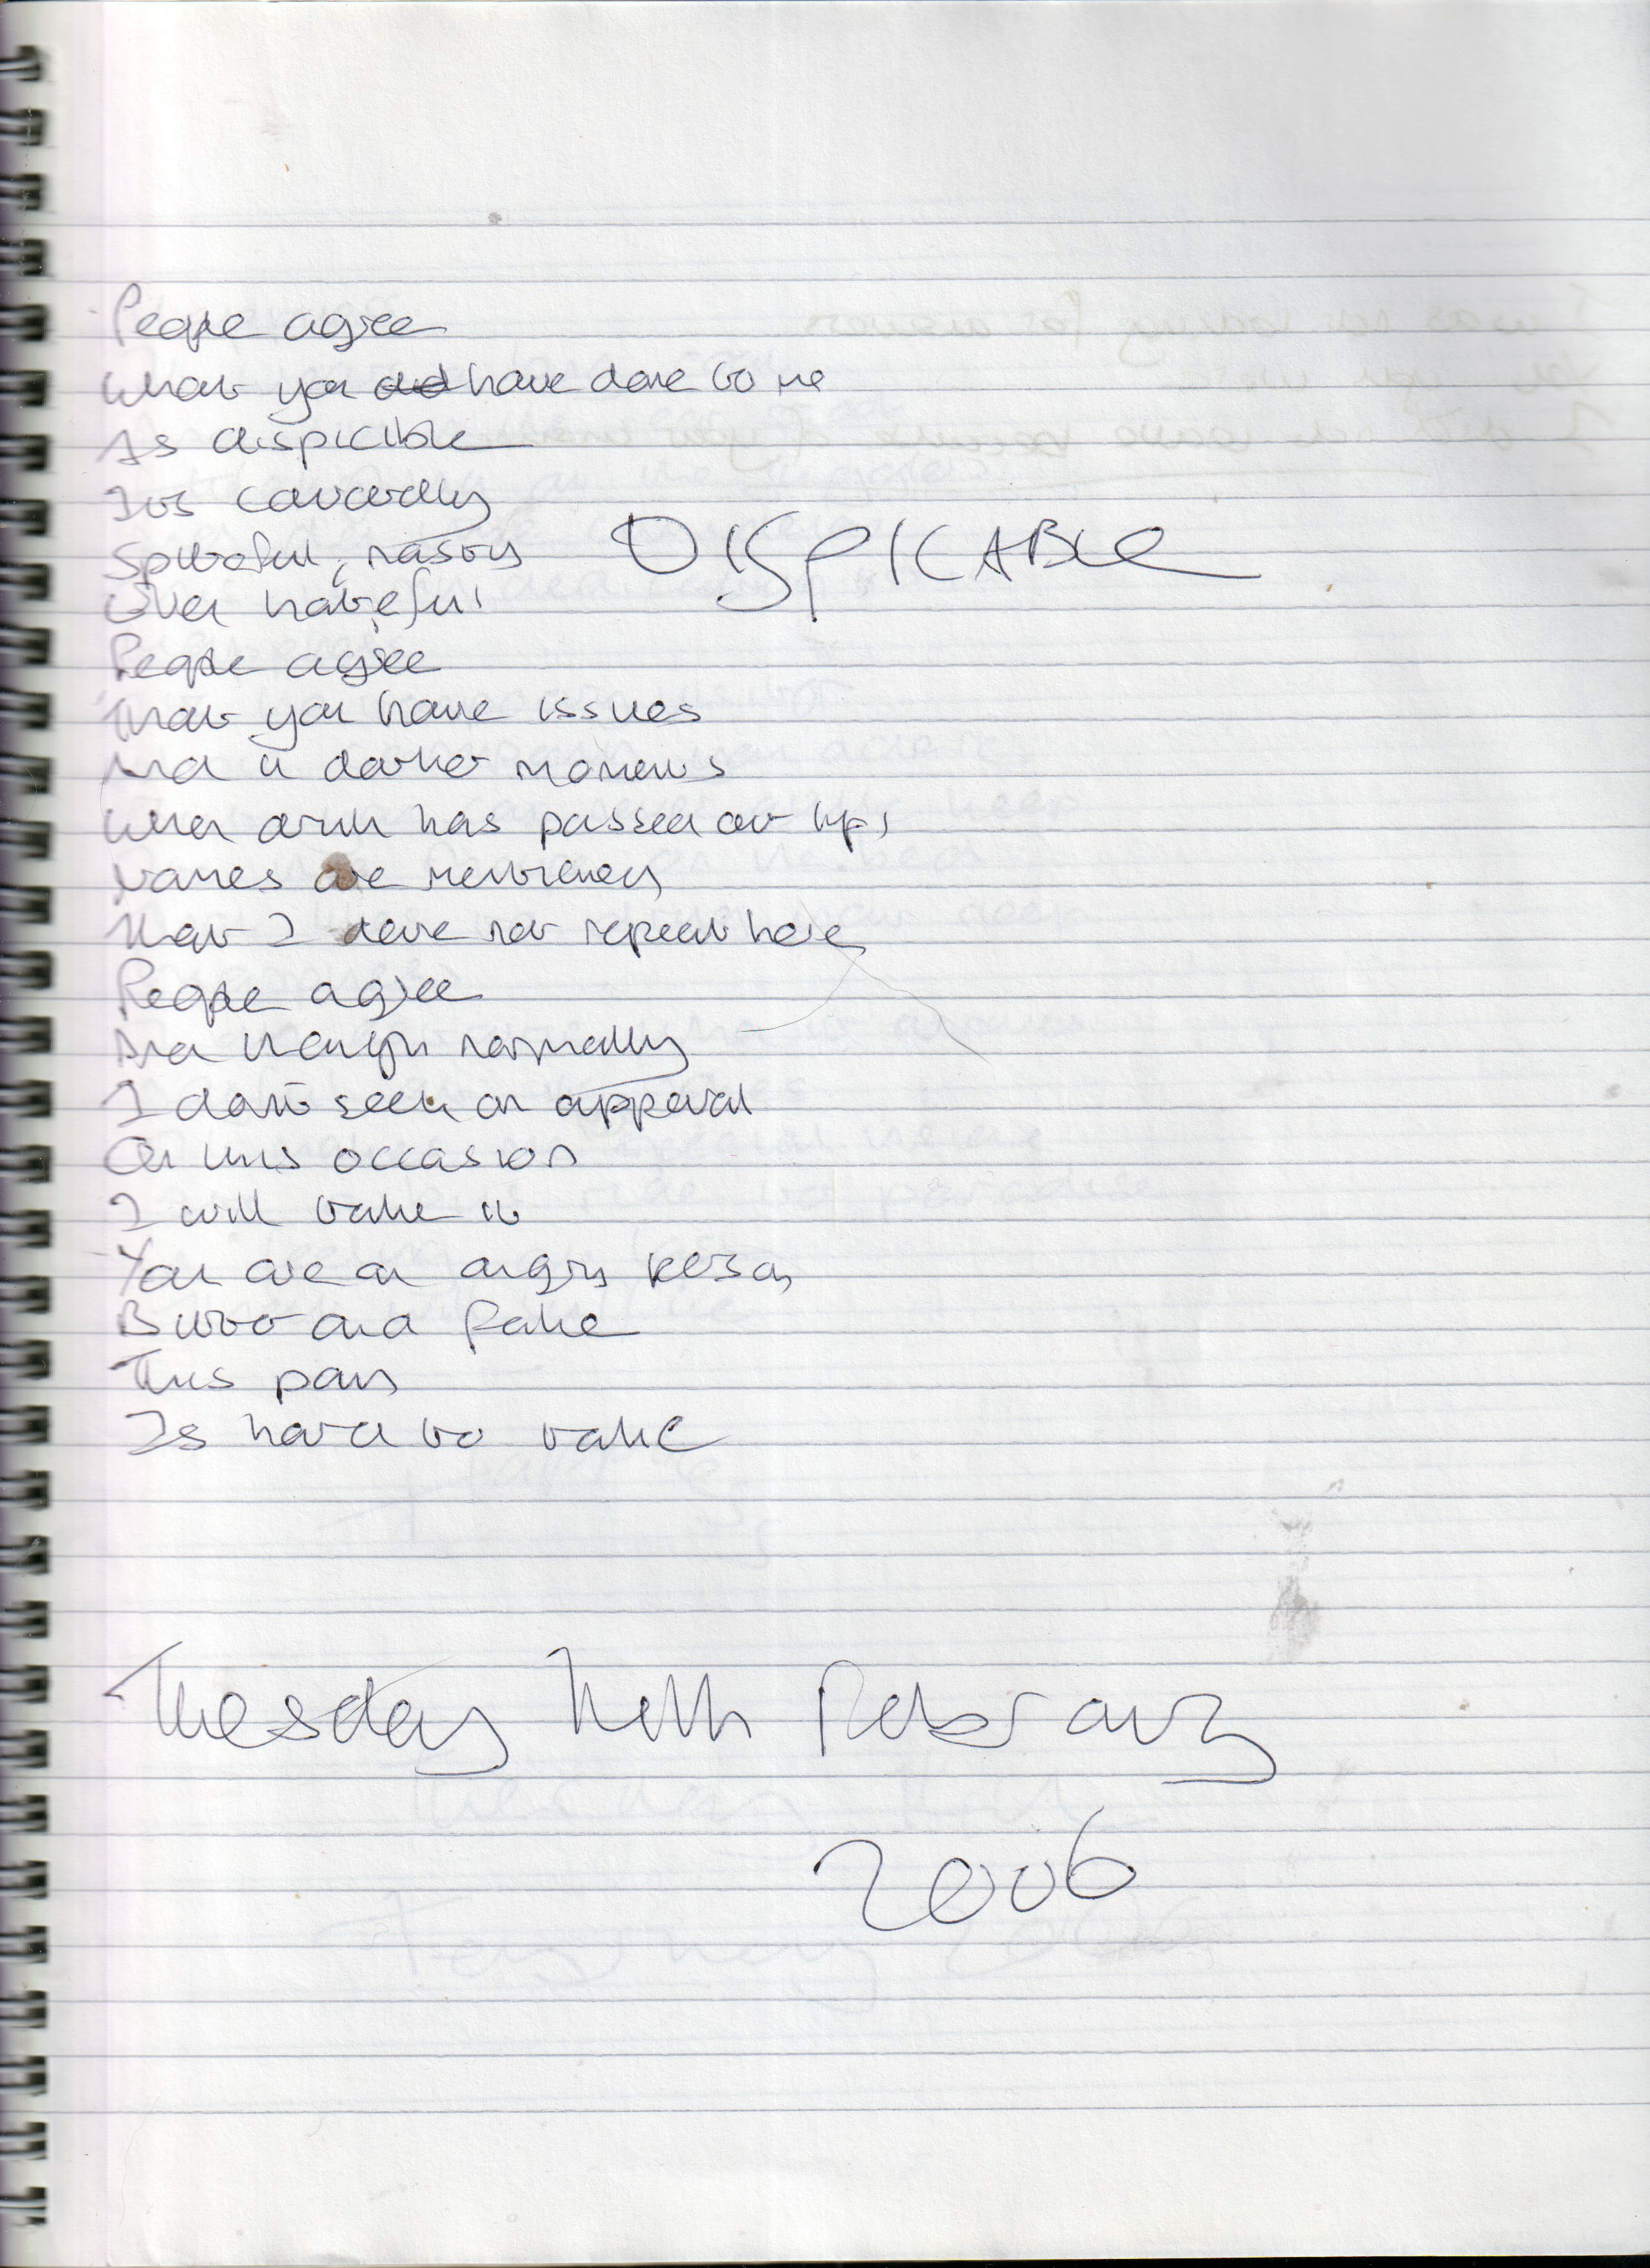 People agree
What you did have done to me
Is dispicible
Its cowardly
Spiteful, nasty
DISPICABLE
Even hateful
People agree
That you have issues
And in darker moments
When drink has passed our lips
Names are mentioned
That I dare not repeat here
People agree
And though normally
I don't seek an approval
On this occasion
I will take it
You are an angry person
Bitter and fake
This pain
Is hard to take
Tuesday February
2006